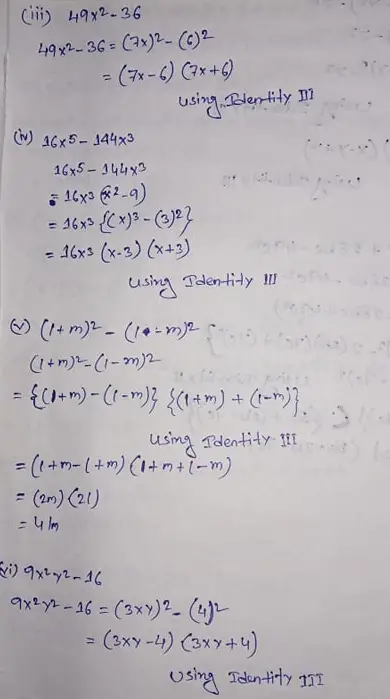 (iii) 49x² - 36
49x² - 36 = (7x)² - (6)²
= (7x-6) (7x+6)
using Identity III
(iv) 16x5 - 144x3
16x5 - 144x3
= 16x3 (x²-9)
= 16x3 {(x)³ - (3)²}
= 16x3 (x-3) (x+3)
using Identity III
(v) (l+m)² - (l-m)²
(l+m)² - (l-m)²
= {(l+m) - (l-m)} {(l+m) + (l-m)}.
using Identity III
= (l+m-l+m) (l+m+l-m)
= (2m) (2l)
= 4lm
(vi) 9x²y² - 16
9x²y² - 16 = (3xy)² - (4)²
= (3xy-4) (3xy+4)
using Identity III